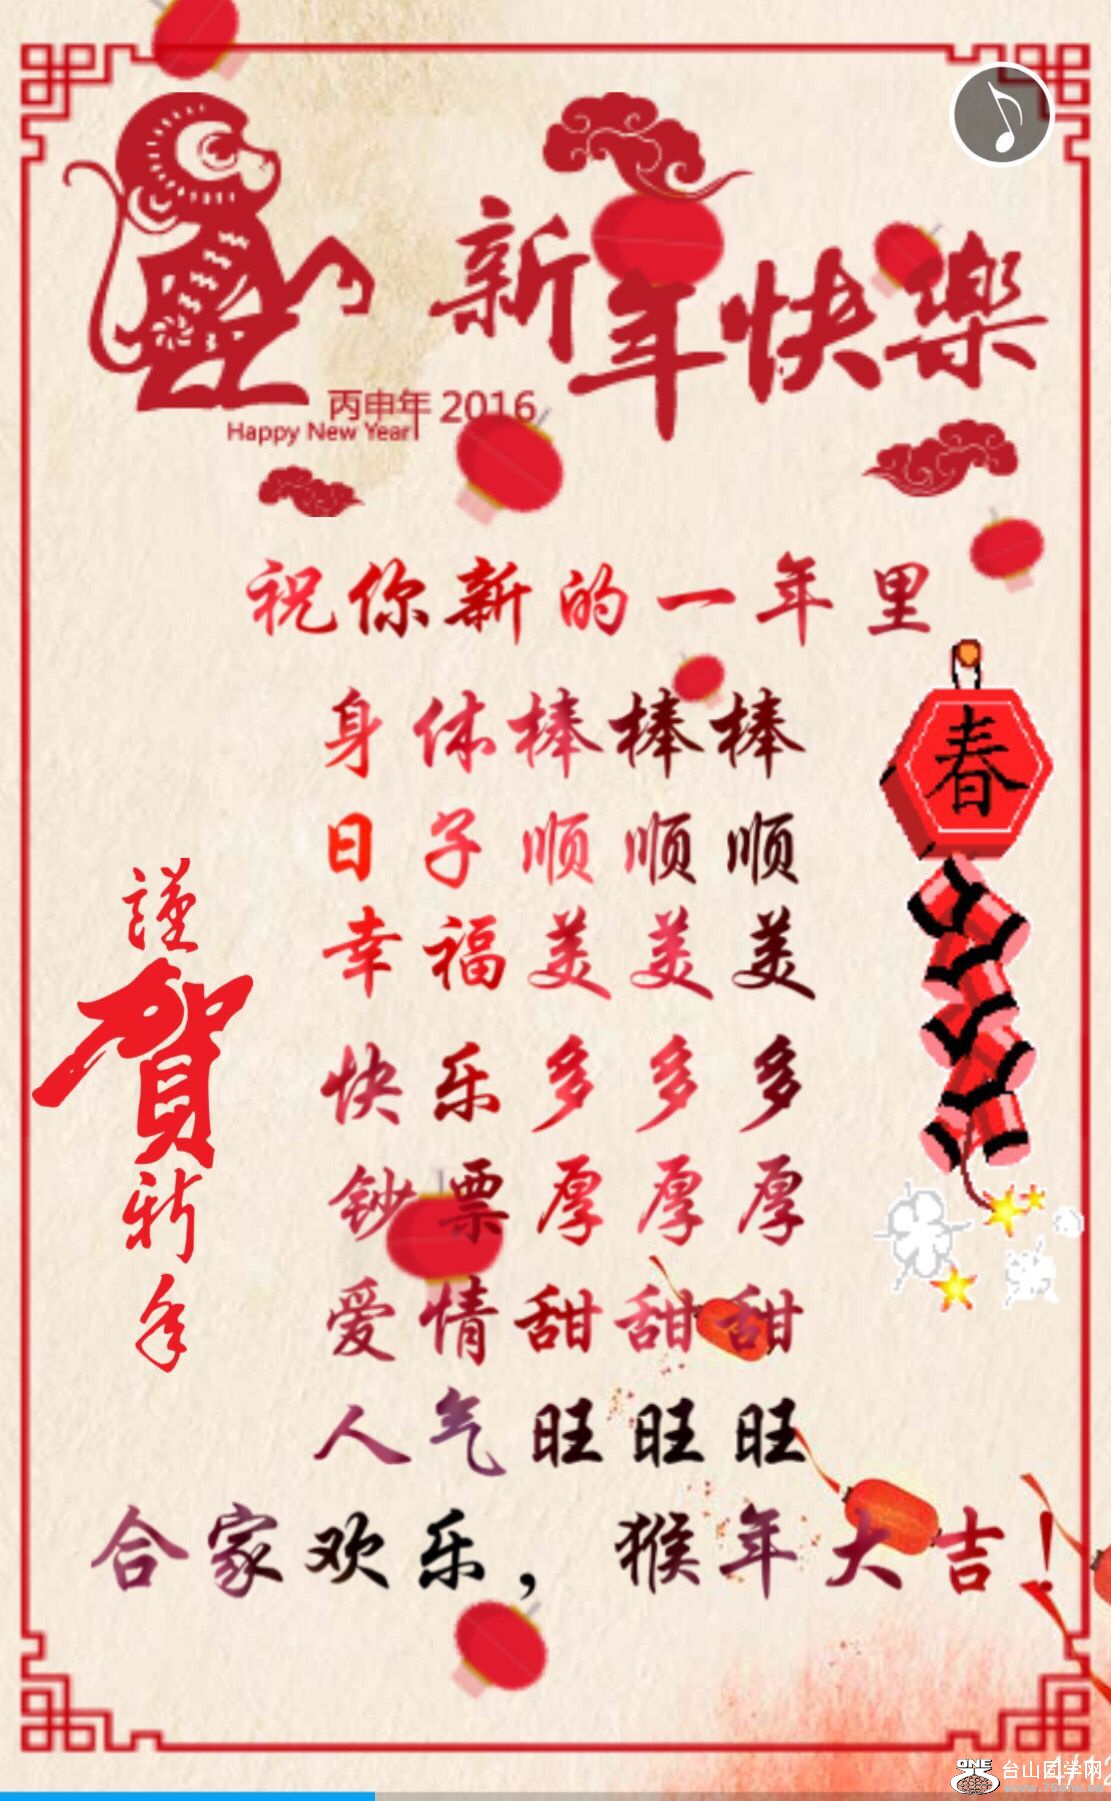 新年快樂
丙申年 2016
Happy New Year
祝你新的一年里
身体棒棒棒
日子顺顺顺
幸福美美美
快乐多多多
钞票厚厚厚
爱情甜甜甜
人气旺旺旺
合家欢乐，猴年大吉！
謹賀新年
春
ONE
台山同学网